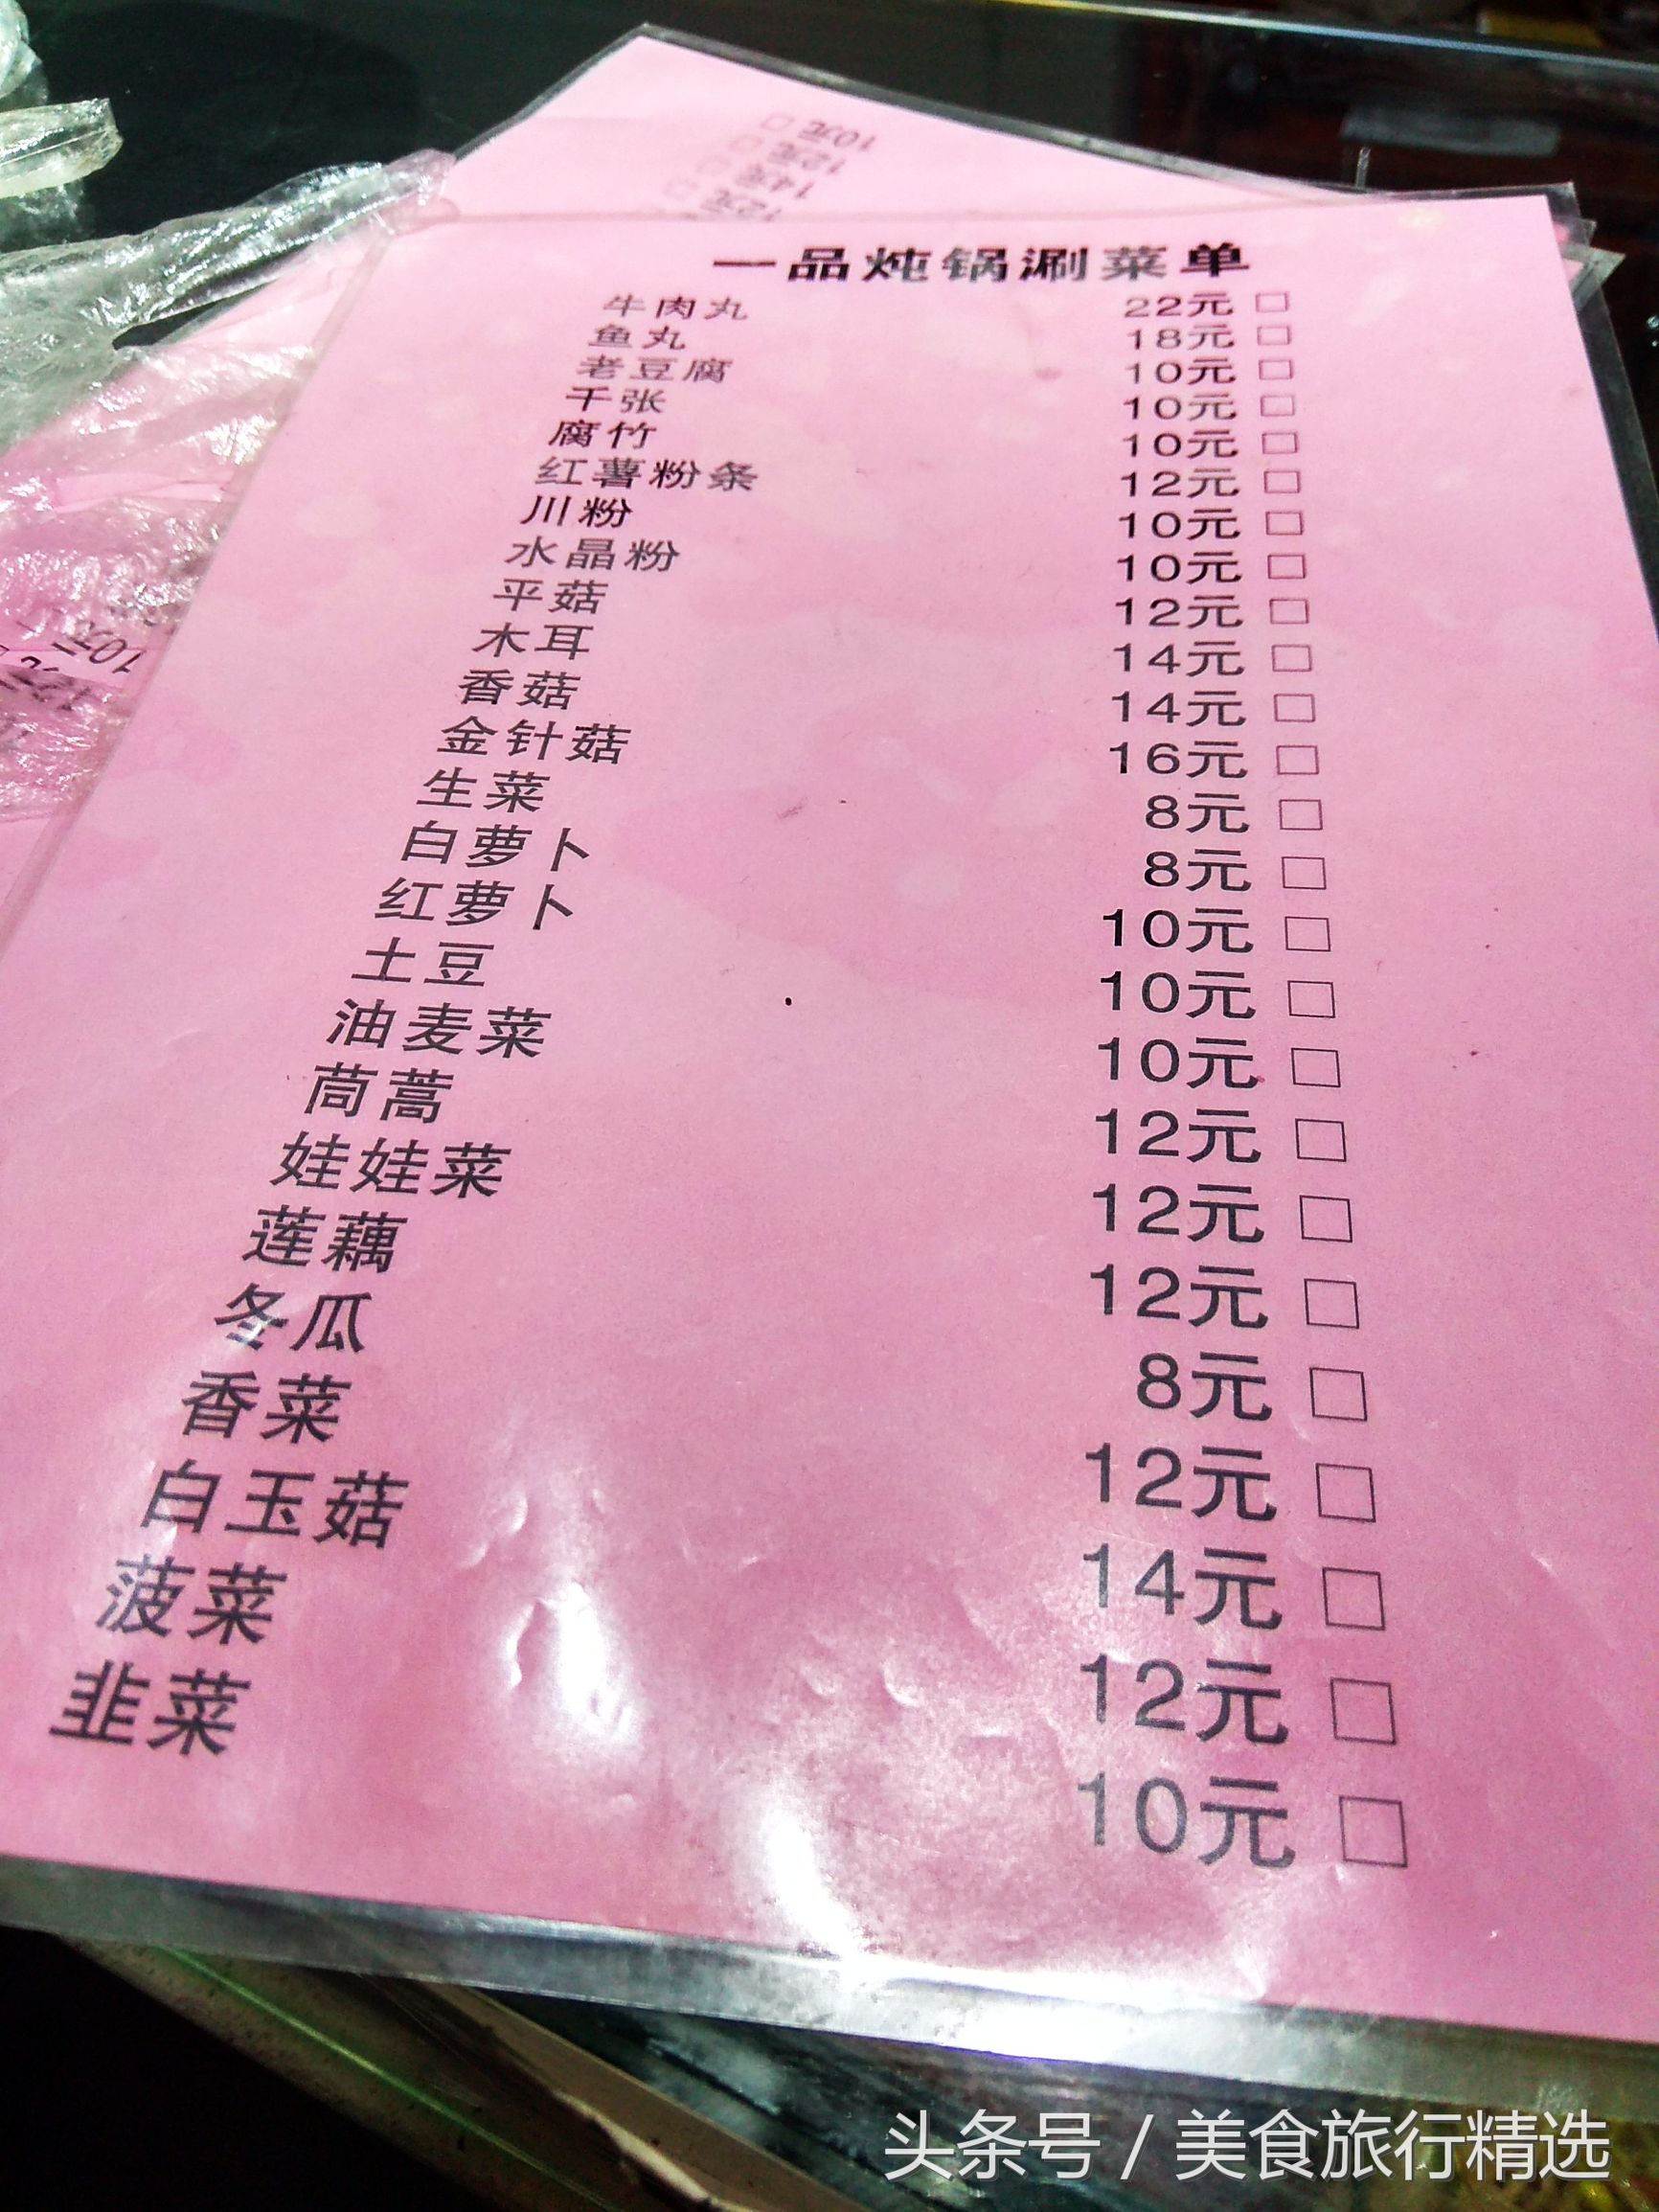 10元 □
12元 □
14元 □
12元 □
一品炖锅涮菜单
牛肉丸 22元 □
鱼丸 18元 □
老豆腐 10元 □
千张 10元 □
腐竹 10元 □
红薯粉条 12元 □
川粉 10元 □
水晶粉 10元 □
平菇 12元 □
木耳 14元 □
香菇 14元 □
金针菇 16元 □
生菜 8元 □
白萝卜 8元 □
红萝卜 10元 □
土豆 10元 □
油麦菜 10元 □
茼蒿 12元 □
娃娃菜 12元 □
莲藕 12元 □
冬瓜 8元 □
香菜 12元 □
白玉菇 14元 □
菠菜 12元 □
韭菜 10元 □
10元
头条号 / 美食旅行精选